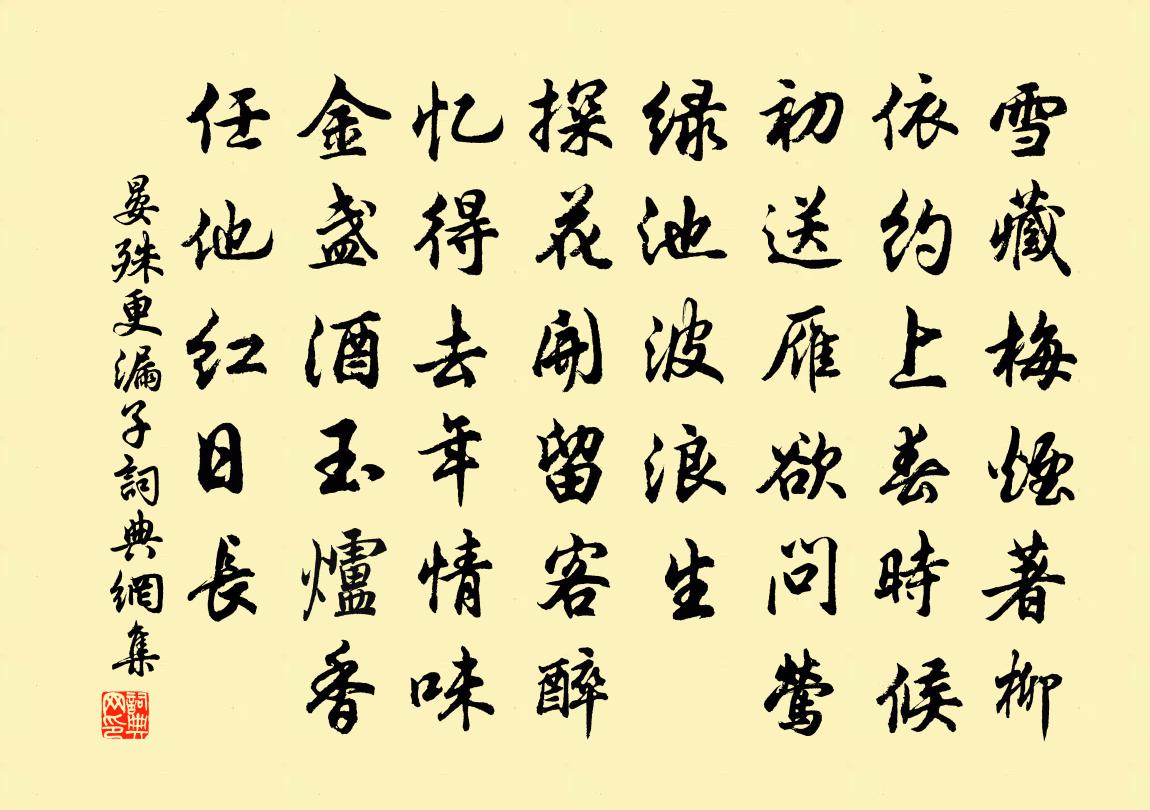 雪藏梅煙著柳
依约上春時候
初送雁欲问莺
绿池波浪生
探花開留客醉
忆得去年情味
金盏酒玉爐香
任他红日長
晏殊更漏子詞典網集
詞典网印